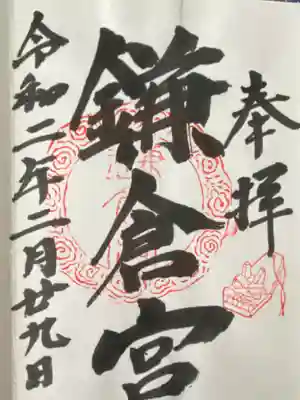 奉拝
鎌倉宮
令和二年二月廿九日